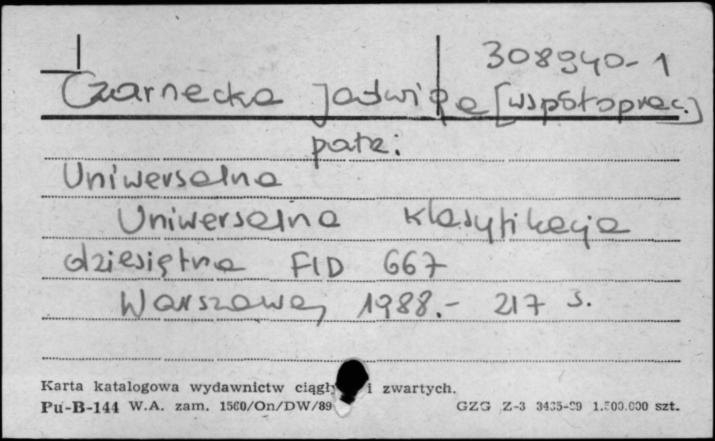 308940-1
Czarnecka Jadwiga [współoprac.]
patz:
Uniwersalna
Uniwersalna klasyfikacja
dziesiętna FID 667
Warszawa, 1988.- 217 s.
Karta katalogowa wydawnictw i zwartych.
Pu-B-144 W.A. zam. 1560/On/DW/89 GZG Z-3 1.500.000 szt.